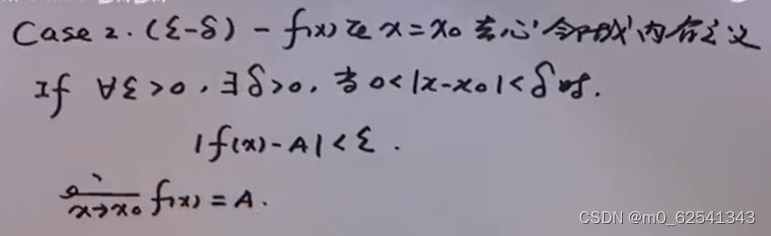 Case 2. (ε-δ) - f(x)在x=x₀去心邻域内有定义
If ∀ε>0, ∃δ>0, 当0<|x-x₀|<δ时.
|f(x)-A|<ε.
x→x₀ f(x)=A.
CSDN @m0_62541343